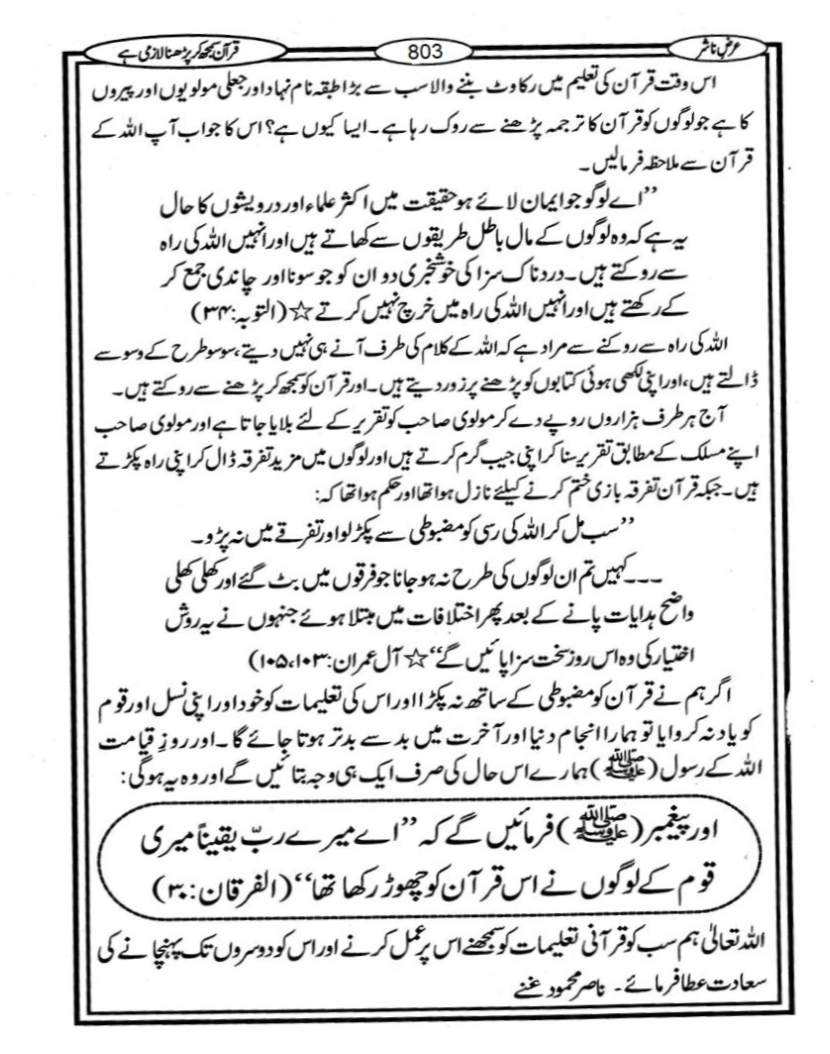 عرضِ ناشر
803
قرآن سمجھ کر پڑھنا لازمی ہے
اس وقت قرآن کی تعلیم میں رکاوٹ بننے والا سب سے بڑا طبقہ نام نہاد اور جعلی مولویوں اور پیروں
کا ہے جو لوگوں کو قرآن کا ترجمہ پڑھنے سے روک رہا ہے۔ ایسا کیوں ہے؟ اس کا جواب آپ اللہ کے
قرآن سے ملاحظہ فرمالیں۔
’’اے لوگو جو ایمان لائے ہو حقیقت میں اکثر علماء اور درویشوں کا حال
یہ ہے کہ وہ لوگوں کے مال باطل طریقوں سے کھاتے ہیں اور انہیں اللہ کی راہ
سے روکتے ہیں۔ دردناک سزا کی خوشخبری دو ان کو جو سونا اور چاندی جمع کر
کے رکھتے ہیں اور انہیں اللہ کی راہ میں خرچ نہیں کرتے ☆ (التوبہ:۳۴)
اللہ کی راہ سے روکنے سے مراد ہے کہ اللہ کے کلام کی طرف آنے ہی نہیں دیتے، سو سو طرح کے وسوسے
ڈالتے ہیں، اور اپنی لکھی ہوئی کتابوں کو پڑھنے پر زور دیتے ہیں۔ اور قرآن کو سمجھ کر پڑھنے سے روکتے ہیں۔
آج ہر طرف ہزاروں روپے دے کر مولوی صاحب کو تقریر کے لئے بلایا جاتا ہے اور مولوی صاحب
اپنے مسلک کے مطابق تقریر سنا کر اپنی جیب گرم کرتے ہیں اور لوگوں میں مزید تفرقہ ڈال کر اپنی راہ پکڑتے
ہیں۔ جبکہ قرآن تفرقہ بازی ختم کرنے کیلئے نازل ہوا تھا اور حکم ہوا تھا کہ:
’’سب مل کر اللہ کی رسی کو مضبوطی سے پکڑ لو اور تفرقے میں نہ پڑو۔
۔۔۔کہیں تم ان لوگوں کی طرح نہ ہو جانا جو فرقوں میں بٹ گئے اور کھلی کھلی
واضح ہدایات پانے کے بعد پھر اختلافات میں مبتلا ہوئے جنہوں نے یہ روش
اختیار کی وہ اس روز سخت سزا پائیں گے‘‘ ☆ آل عمران:۱۰۵،۱۰۳)
اگر ہم نے قرآن کو مضبوطی کے ساتھ نہ پکڑا اور اس کی تعلیمات کو خود اور اپنی نسل اور قوم
کو یاد نہ کروایا تو ہمارا انجام دنیا اور آخرت میں بد سے بدتر ہوتا جائے گا۔ اور روزِ قیامت
اللہ کے رسول (ﷺ) ہمارے اس حال کی صرف ایک ہی وجہ بتائیں گے اور وہ یہ ہوگی:
اور پیغمبر (ﷺ) فرمائیں گے کہ ’’اے میرے ربّ یقیناً میری
قوم کے لوگوں نے اس قرآن کو چھوڑ رکھا تھا‘‘ (الفرقان:۳۰)
اللہ تعالیٰ ہم سب کو قرآنی تعلیمات کو سمجھنے اس پر عمل کرنے اور اس کو دوسروں تک پہنچانے کی
سعادت عطا فرمائے۔ ناصر محمود غنے